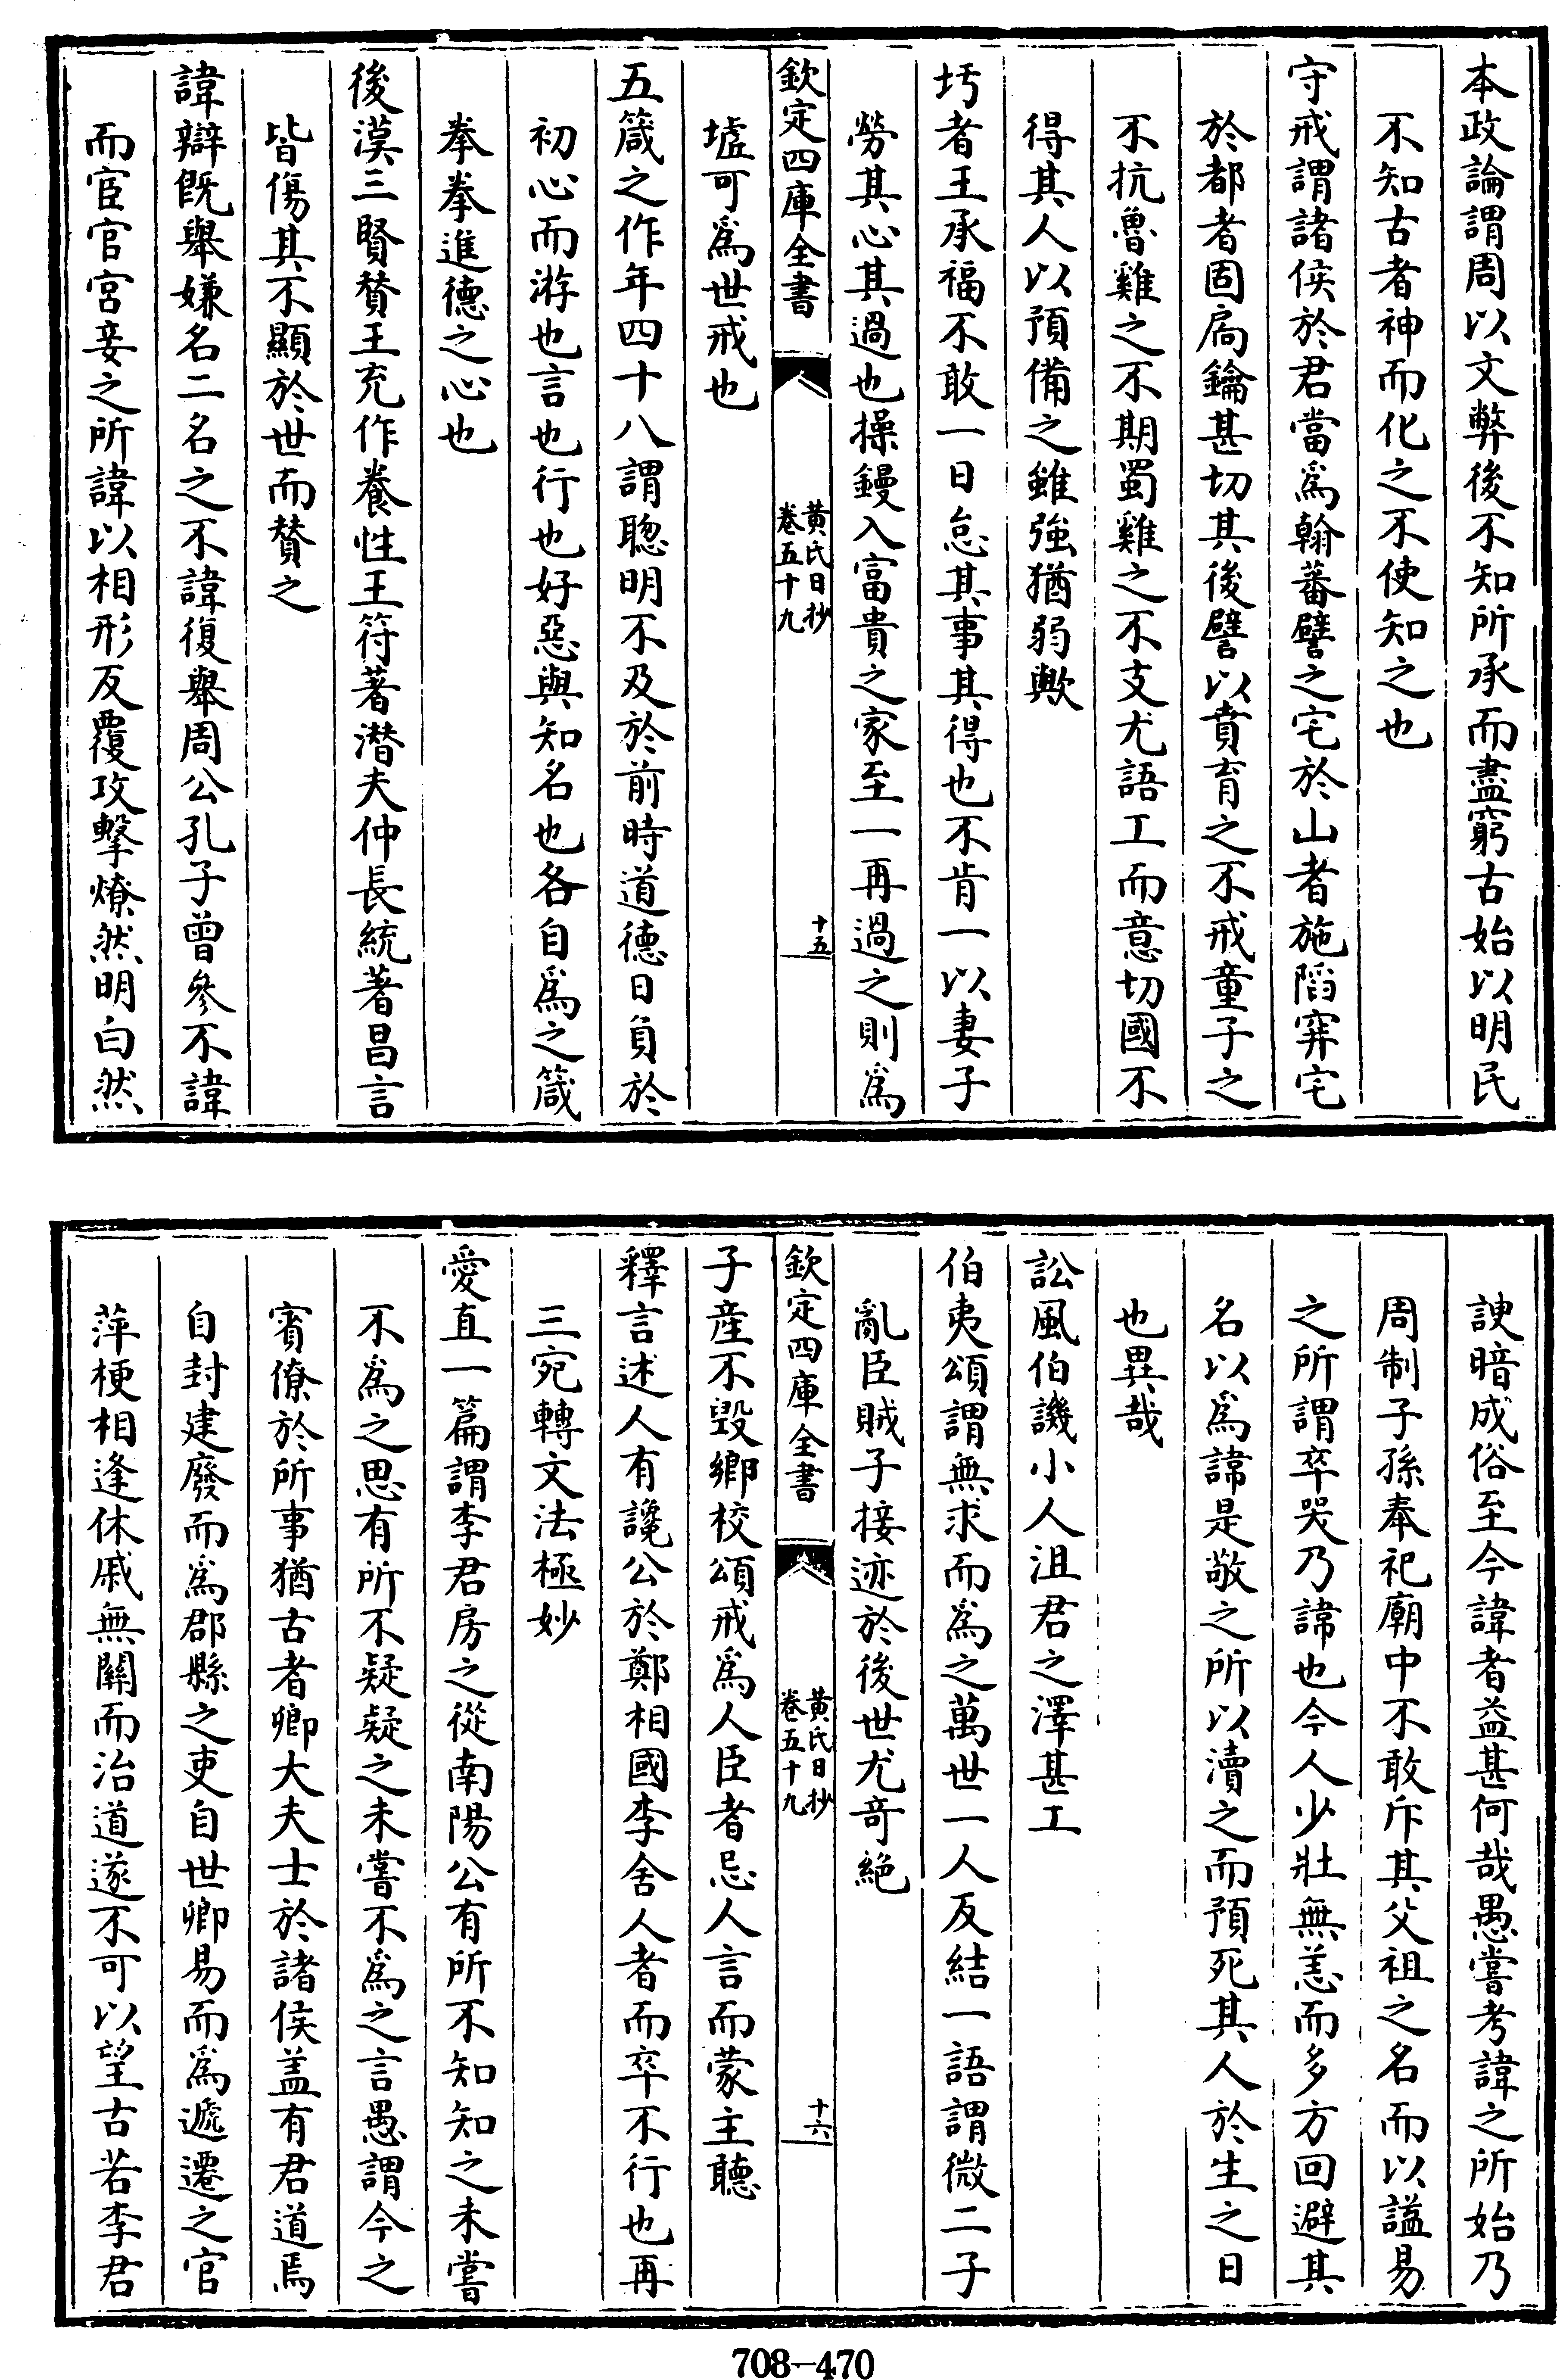 本政論謂周以文弊後不知所承而盡窮古始以明民
不知古者神而化之不使知之也
守戒謂諸侯於君當爲翰蕃譬之宅於山者施䧟穽宅
於都者固扃鑰甚切其後譬以賁育之不戒童子之
不抗魯雞之不期蜀雞之不支尤語工而意切國不
得其人以預備之雖強猶弱歟
圬者王承福不敢一日怠其事其得也不肯一以妻子
勞其心其過也操鏝入富貴之家至一再過之則爲
欽定四庫全書
黃氏日抄
卷五十九
十五
墟可爲世戒也
五箴之作年四十八謂聰明不及於前時道德日負於
初心而游也言也行也好惡與知名也各自爲之箴
拳拳進德之心也
後漢三賢贊王充作養性王符著潛夫仲長統著昌言
皆傷其不顯於世而贊之
諱辯既舉嫌名二名之不諱復舉周公孔子曾參不諱
而宦官宮妾之所諱以相形反覆攻擊燎然明白然
諛暗成俗至今諱者益甚何哉愚嘗考諱之所始乃
周制子孫奉祀廟中不敢斥其父祖之名而以謚易
之所謂卒哭乃諱也今人少壯無恙而多方回避其
名以爲諱是敬之所以瀆之而預死其人於生之日
也異哉
訟風伯譏小人沮君之澤甚工
伯夷頌謂無求而爲之萬世一人反結一語謂微二子
亂臣賊子接迹於後世尤奇絕
欽定四庫全書
黃氏日抄
卷五十九
十六
子產不毀鄉校頌戒爲人臣者忌人言而蒙主聽
釋言述人有讒公於鄭相國李舍人者而卒不行也再
三宛轉文法極妙
愛直一篇謂李君房之從南陽公有所不知知之未嘗
不爲之思有所不疑疑之未嘗不爲之言愚謂今之
賓僚於所事猶古者卿大夫士於諸侯盖有君道焉
自封建廢而爲郡縣之吏自世卿易而爲遞遷之官
萍梗相逢休戚無關而治道遂不可以望古若李君
708-470